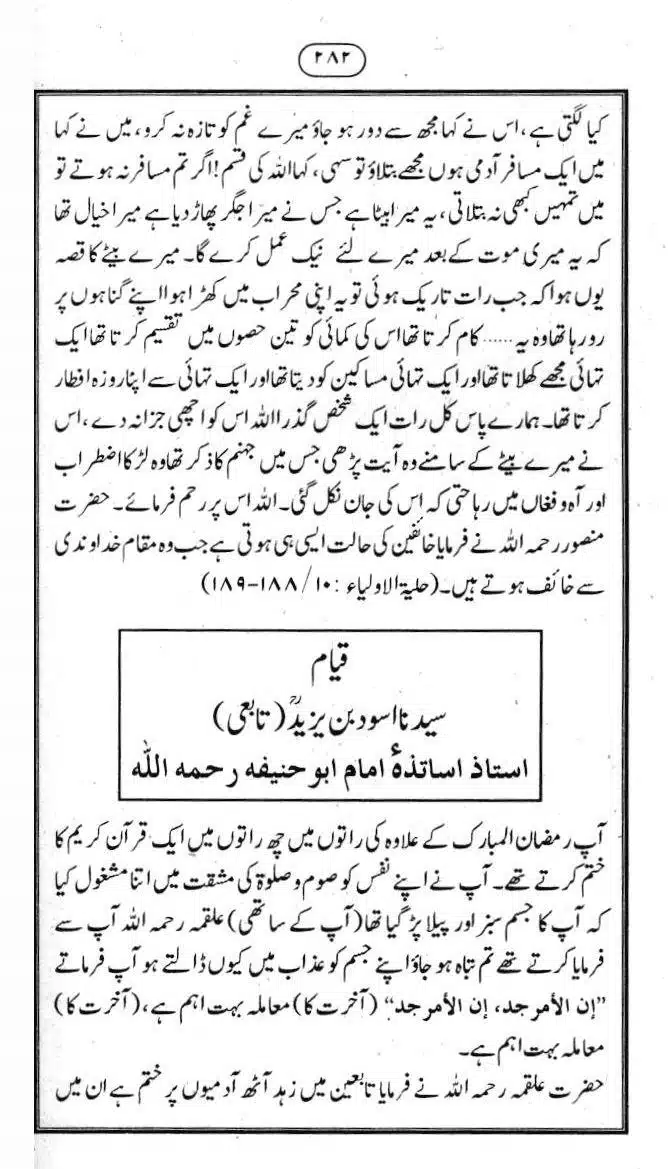 ۲۸۲
کیا لگتی ہے، اس نے کہا مجھ سے دور ہو جاؤ میرے غم کو تازہ نہ کرو، میں نے کہا
میں ایک مسافر آدمی ہوں مجھے بتلاؤ تو سہی، کہا اللہ کی قسم! اگر تم مسافر نہ ہوتے تو
میں تمہیں کبھی نہ بتلاتی، یہ میرا بیٹا ہے جس نے میرا جگر پھاڑ دیا ہے میرا خیال تھا
کہ یہ میری موت کے بعد میرے لئے نیک عمل کرے گا۔ میرے بیٹے کا قصہ
یوں ہوا کہ جب رات تاریک ہوئی تو یہ اپنی محراب میں کھڑا ہوا اپنے گناہوں پر
رو رہا تھا وہ یہ ...... کام کرتا تھا اس کی کمائی کو تین حصوں میں تقسیم کرتا تھا ایک
تہائی مجھے کھلاتا تھا اور ایک تہائی مساکین کو دیتا تھا اور ایک تہائی سے اپنا روزہ افطار
کرتا تھا۔ ہمارے پاس کل رات ایک شخص گذرا اللہ اس کو اچھی جزا نہ دے، اس
نے میرے بیٹے کے سامنے وہ آیت پڑھی جس میں جہنم کا ذکر تھا وہ لڑکا اضطراب
اور آہ و فغاں میں رہا حتی کہ اس کی جان نکل گئی۔ اللہ اس پر رحم فرمائے۔ حضرت
منصور رحمہ اللہ نے فرمایا خائفین کی حالت ایسی ہی ہوتی ہے جب وہ مقام خداوندی
سے خائف ہوتے ہیں۔ (حلیۃ الاولیاء :۱۰/ ۱۸۸-۱۸۹)
قیام
سیدنا اسود بن یزیدؒ (تابعی)
استاذ اساتذۂ امام ابو حنیفہ رحمہ اللہ
آپ رمضان المبارک کے علاوہ کی راتوں میں چھ راتوں میں ایک قرآن کریم کا
ختم کرتے تھے۔ آپ نے اپنے نفس کو صوم و صلوٰۃ کی مشقت میں اتنا مشغول کیا
کہ آپ کا جسم سبز اور پیلا پڑ گیا تھا (آپ کے ساتھی) علقمہ رحمہ اللہ آپ سے
فرمایا کرتے تھے تم تباہ ہو جاؤ اپنے جسم کو عذاب میں کیوں ڈالتے ہو آپ فرماتے
”إن الأمر جد، إن الأمر جد“ (آخرت کا) معاملہ بہت اہم ہے، (آخرت کا)
معاملہ بہت اہم ہے۔
حضرت علقمہ رحمہ اللہ نے فرمایا تابعین میں زہد آٹھ آدمیوں پر ختم ہے ان میں